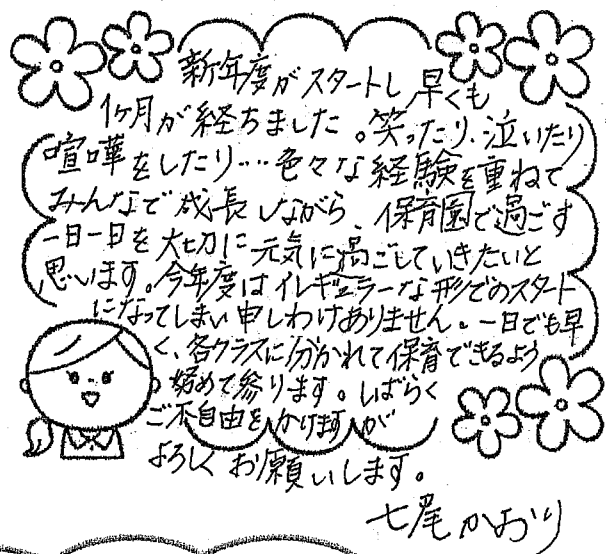 新年度がスタートし、早くも
1ヶ月が経ちました。笑ったり、泣いたり
喧嘩をしたり…色々な経験を重ねて
みんなで成長しながら、保育園で過ごす
一日一日を大切に元気に過ごしていきたいと
思います。今年度はイレギュラーな形でのスタート
になってしまい申しわけありません。一日でも早
く、各クラスに分かれて保育できるよう
努めて参ります。しばらく
ご不自由をかけますが
よろしくお願いします。
七尾かおり